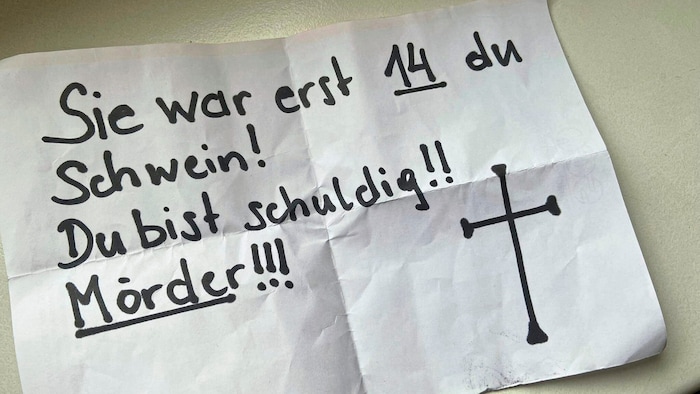 Sie war erst 14 du
Schwein!
Du bist schuldig!!
Mörder!!!